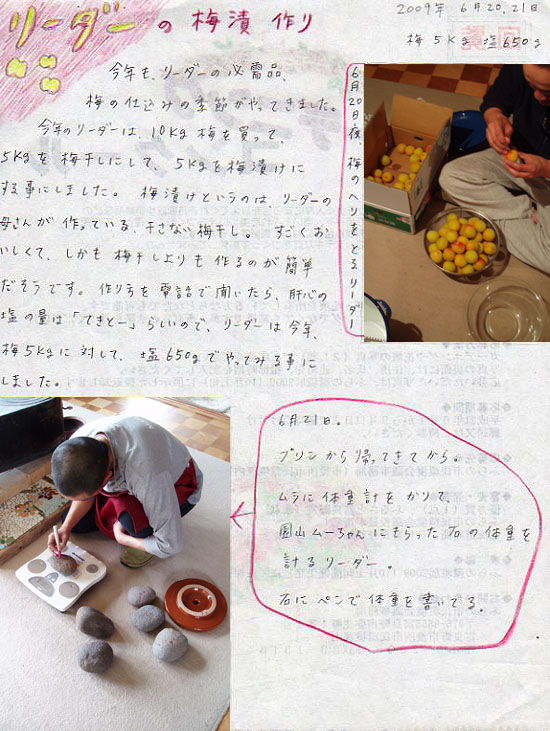 リーダーの梅漬作り
2009年 6月20,21日
梅5Kg 塩650g
今年も、リーダーの必需品、
梅の仕込みの季節がやってきました。
今年のリーダーは、10Kg梅を買って、
5Kgを梅干しにして、5Kgを梅漬けに
する事にしました。 梅漬けというのは、リーダーの
母さんが作っている、干さない梅干し。 すごくお
いしくて、しかも梅干しよりも作るのが簡単
だそうです。 作り方を電話で聞いたら、肝心の
塩の量は「てきとー」らしいので、リーダーは今年、
梅5Kgに対して、塩650gでやってみる事に
しました。
6月20日夜、梅のヘソをとるリーダー
6月21日。
プリンから帰ってきてから。
ムラに体重計をかりて、
園山ムーちゃんにもらった石の体重を
計るリーダー。
石にペンで体重を書いてる。